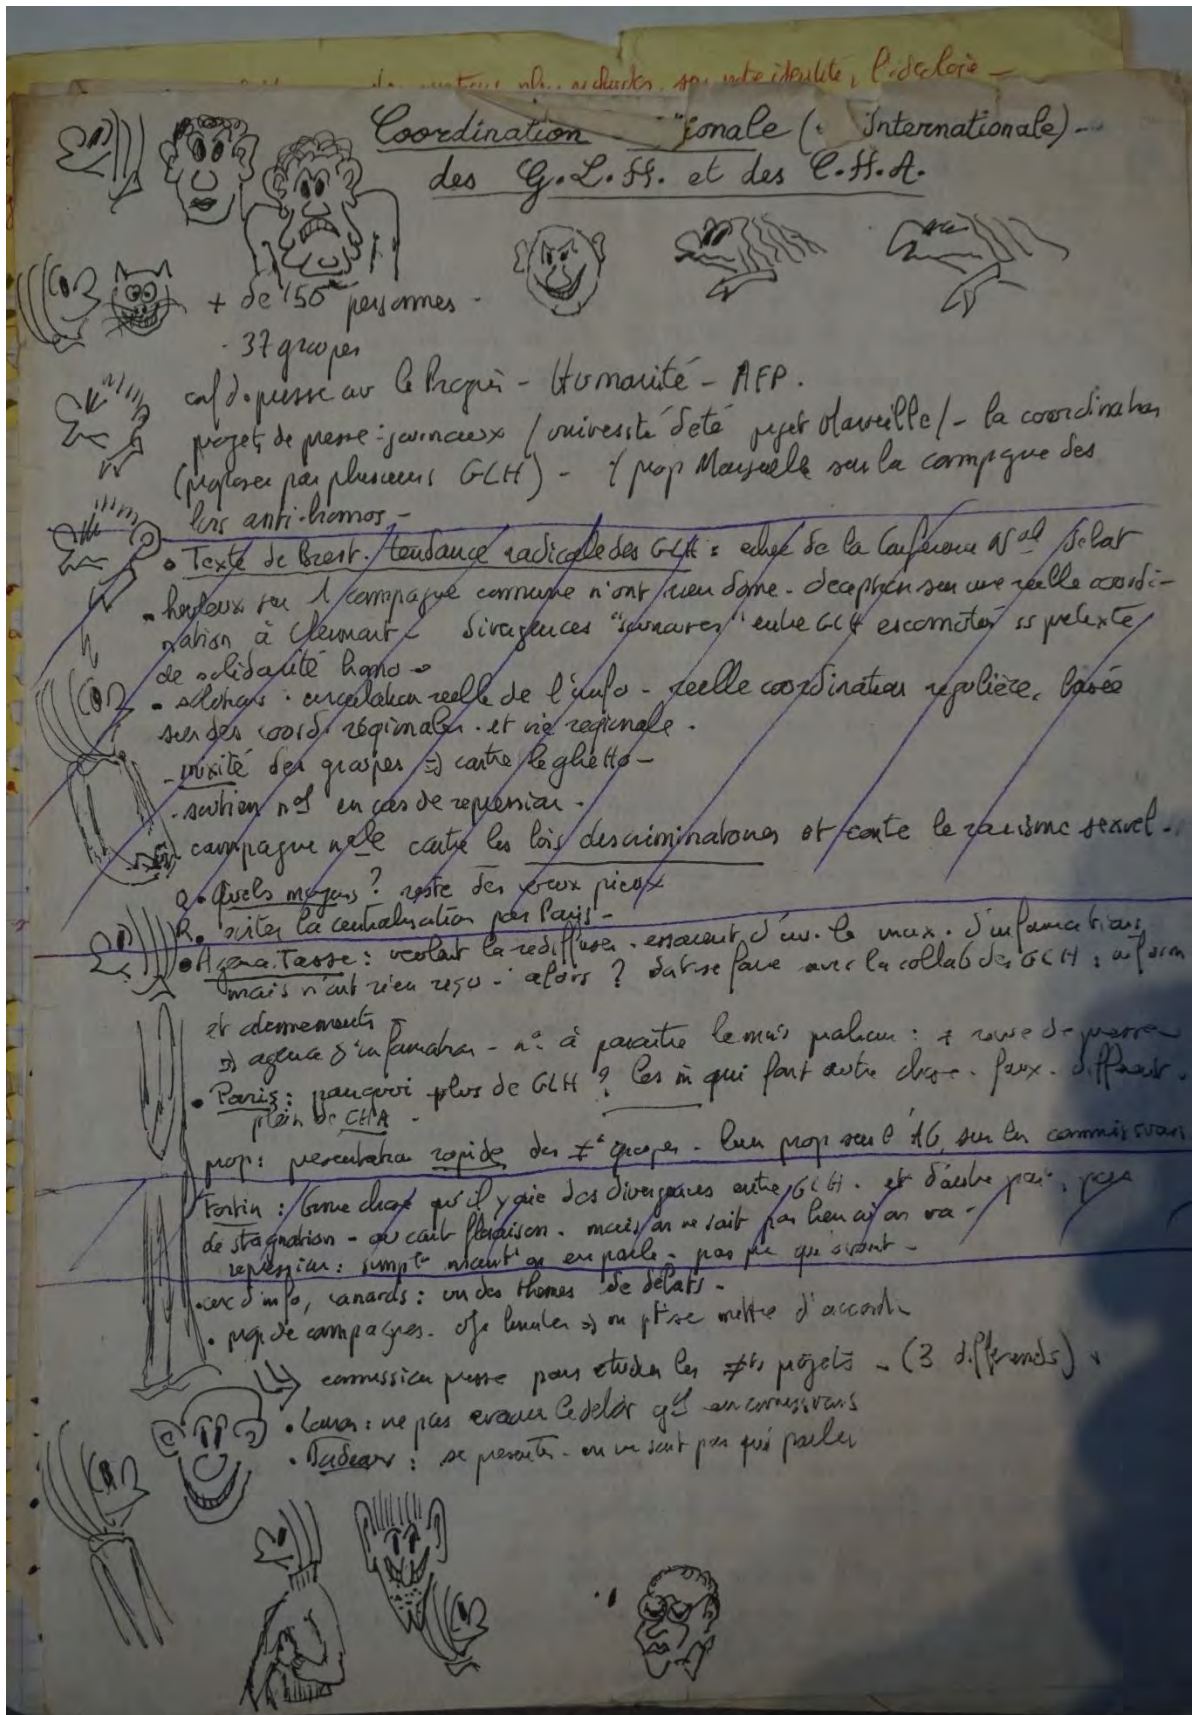 sur votre identité,
Coordination ionale (Internationale) -
des G.L.H. et des C.H.A.
+ de 150 personnes -
- 37 groupes
conf de presse av le Progrès - Humanité - AFP.
projets de presse : journaux / université d'été projet Marseille / - la coordination
(proposer par plusieurs GLH) - prop Marseille sur la campagne des
lois anti-homos -
• Texte de Brest. tendance radicale des GLH : echec de la Conférence Nale débat
1 campagne commune n'ont rien donné - deception sur une réelle coordi-
nation à Clermont - divergences entre GLH escamotés ss pretexte
de solidarité homo -
• solutions : circulation reelle de l'info - réelle coordination régulière, basée
sur des coord. régionales - et vie regionale.
- mixité des groupes => contre le ghetto -
- soutien nal en cas de repression -
- campagne nale contre les lois discriminatoires et contre le racisme sexuel -
Q. Quels moyens ? reste des voeux pieux
R. eviter la centralisation par Paris -
• Agence Tasse : voulait la rediffuser - d'informations
mais n'ont rien reçu - alors ? doit se faire avec la collab des GLH :
et abonnements -
=> agence d'information - n° à paraitre le mois prochain : + revue de presse
• Paris : pourquoi plus de GLH ? Les qui font autre chose - faux - différent.
plein de CHA -
prop : presentation rapide des ≠ts groupes - 1 AG, sur les commissions
: bonne chose qu'il y aie des divergences entre GLH. et d'autre part, pas
de stagnation - - mais on ne sait pas bien où on va -
repression : simplt on en parle - pas pire qu'avant -
d'info, canards : un des themes de débats -
• prop de campagnes - => on pt se mettre d'accord -
commission presse pour etudier les ≠ts projets - (3 différends)
• : ne pas le débat gal en commissions
• : se presenter - on ne sait pas qui parle